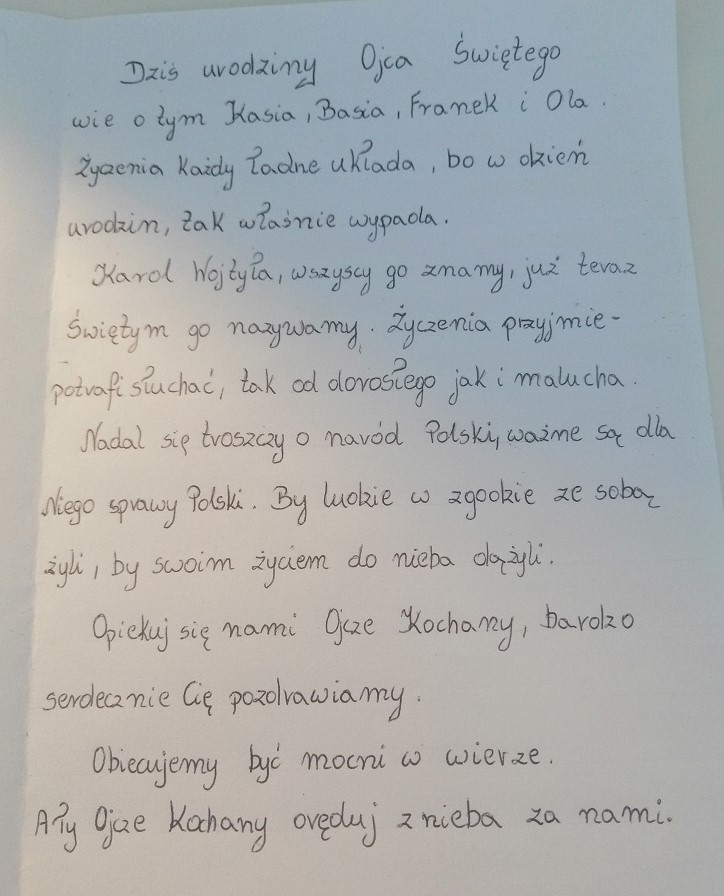 Dziś urodziny Ojca Świętego
wie o tym Kasia, Basia, Franek i Ola.
Życzenia każdy ładne układa, bo w dzień
urodzin, tak właśnie wypada.
Karol Wojtyła, wszyscy go znamy, już teraz
Świętym go nazywamy. Życzenia przyjmie -
potrafi słuchać, tak od dorosłego jak i malucha.
Nadal się troszczy o naród Polski, ważne są dla
Niego sprawy Polski. By ludzie w zgodzie ze sobą
żyli, by swoim życiem do nieba dążyli.
Opiekuj się nami Ojcze Kochany, bardzo
serdecznie Cię pozdrawiamy.
Obiecujemy być mocni w wierze.
A Ty Ojcze Kochany oręduj z nieba za nami.